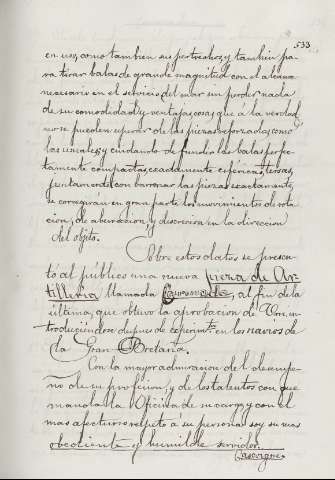 533
en uso, como tambien sus pertrechos, y tambien pa-
ra tirar balas de grande magnitud con el alcance
necesario en el servicio del mar sin perder nada
de su comodidad y ventajas, cosas que a la verdad
no se pueden esperar de las piezas reforzadas como
las usuales, y cuidando de fundir las balas perfec-
tamente compactas, exactamente esfericas, tersas,
juntamente con barrenar las piezas exactamente,
se corregirán en gran parte los movimientos de rota-
cion, de aberracion, y desercion en la direccion
del objeto.
Sobre estos datos se presen-
tó al público una nueva pieza de Ar-
tilleria llamada Carronada, al fin de la
última, que obtuvo la aprobacion de Vm, in-
troduciendose despues de experimto en los navios de
la Gran Bretaña.
Con la mayor admiracion del desempe-
ño de su profesion, y de los talentos con que
manda la Oficina de su cargo, y con el
mas afectuoso respeto á su persona soy su mas
obediente y humilde servidor.
Gascoigne.